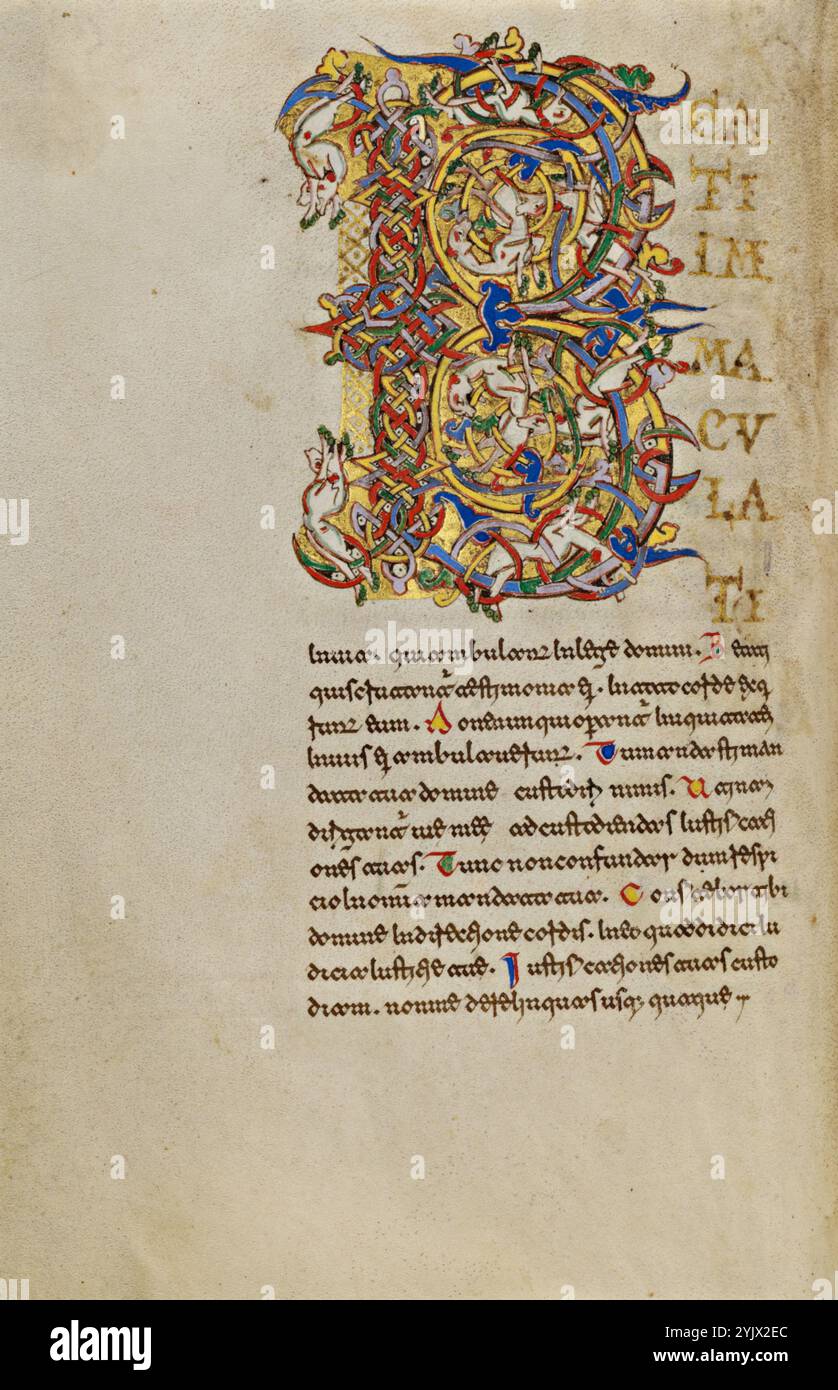 B
EA
TI
IM
MA
CV
LA
TI
in uia. qui ambulant in lege domini. Beati
qui scrutant testimonia ei. in toto corde exq
runt eum. Non enim qui operant iniquitatem
in uiis ei ambulauerunt. Tu mandasti man
data tua domine custodiri nimis. Utinam
dirigant uie mee ad custodiendas iustificati
ones tuas. Tunc non confundar dum respi
cio in omia mandata tua. Confitebor tibi
domine in directione cordis. in eo quod didici iu
dicia iustitie tue. Iustificationes tuas custo
diam. non me derelinquas usq; quaque
alamy
Image ID: 2YJX2EC
www.alamy.com